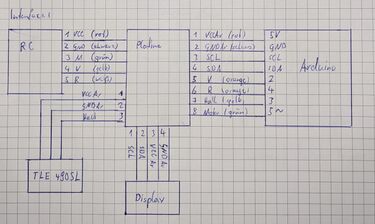 Interface:
RC
1 VCC (rot)
2 GND (schwarz)
3 M (grün)
4 V (gelb)
5 R (weiß)
VCCAr 1
GNDAr 2
Hall 3
TLE 4905L
Platine
1 VCCAr (rot)
2 GNDAr (schwarz)
3 SCL
4 SDA
5 V (orange)
6 R (orange)
7 Hall (gelb)
8 Motor (grün)
5V
GND
SCL
SDA
2
4
3
5~
Arduino
1 2 3 4
SCL
SDA
VCCAr
GNDAr
Display